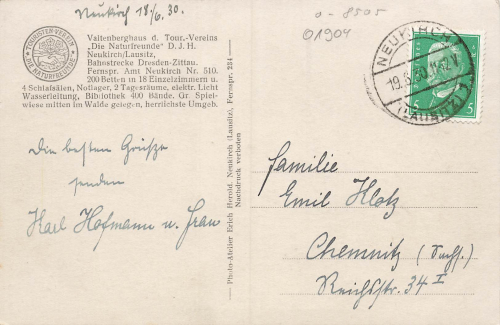 Neukirch 18/6. 30.
0 - 8505
01904
TOURISTEN-VEREIN
DIE NATURFREUNDE
Valtenberghaus d. Tour.-Vereins
„Die Naturfreunde" D. J. H.
Neukirch/Lausitz,
Bahnstrecke Dresden-Zittau.
Fernspr. Amt Neukirch Nr. 510.
200 Betten in 18 Einzelzimmern u.
4 Schlafsälen, Notlager, 2 Tagesräume, elektr. Licht
Wasserleitung, Bibliothek 400 Bände. Gr. Spiel-
wiese mitten im Walde gelegen, herrlichste Umgeb.
Die besten Grüße
senden
Karl Hofmann u. Frau
Photo-Atelier Erich Herold, Neukirch (Lausitz), Fernspr. 234
Nachdruck verboten
NEUKIRCH
19.6.30.11-12V.
(LAUSITZ)
5
5
Familie
Emil Klotz
Chemnitz (Sachs.)
Reichsstr. 34 I